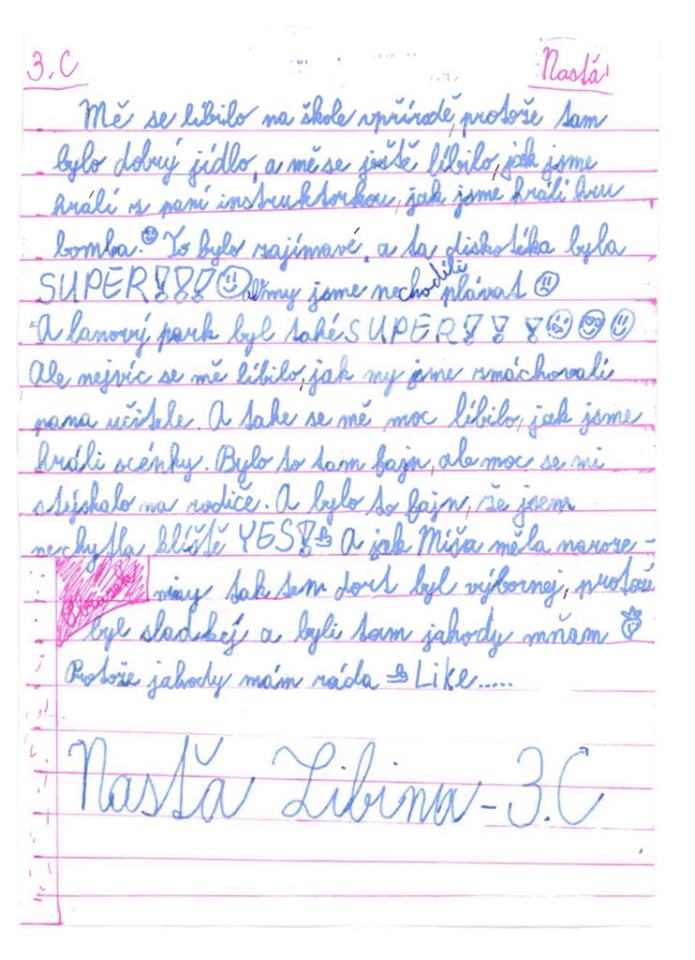 3.C Nasťa
Mě se líbilo na škole vpřírodě, protože tam
bylo dobrý jídlo, a mě se ještě líbilo, jak jsme
hráli s paní instruktorkou, jak jsme hráli hru
bomba. To bylo zajímavé, a ta diskotéka byla
SUPER!!! my jsme nechodili plávat
A lanový park byl také SUPER! ! !
Ale nejvíc se mě líbilo, jak my jsme zmáchovali
pana učitele. A take se mě moc líbilo, jak jsme
hráli scénky. Bylo to tam fajn, ale moc se mi
stejskalo na rodiče. A bylo to fajn, že jsem
nechytla klíště YES! A jak Míša měla naroze-
niny tak ten dort byl výbornej, protože
byl sladkej a byli tam jahody mňam
Protože jahody mám ráda Like.....
Nasťa Libina - 3.C